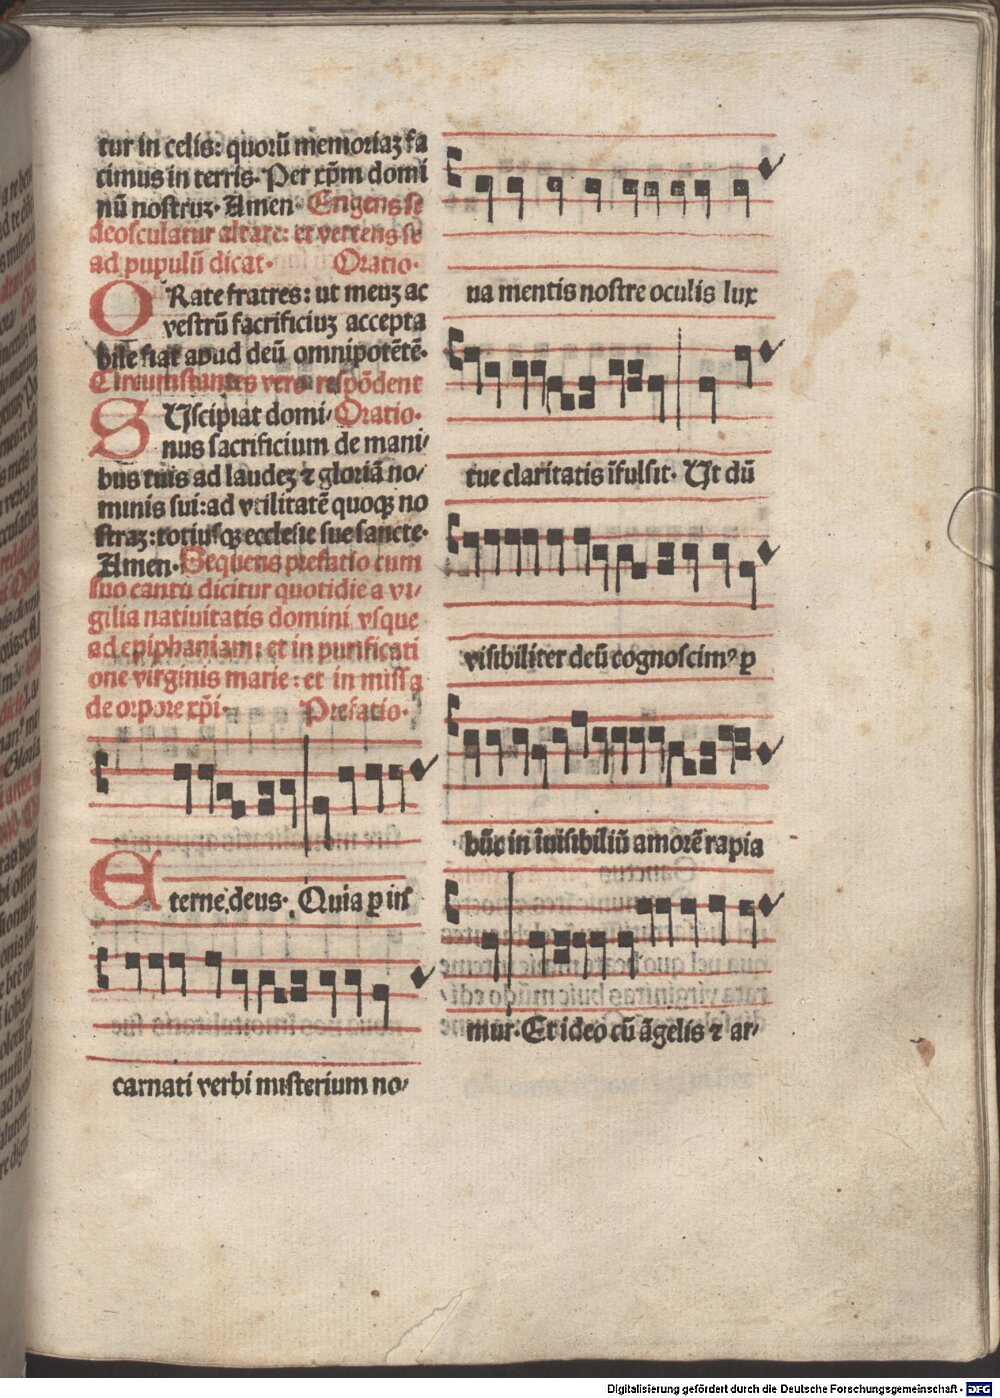 tur in celis: quorū memoriaꝫ fa
cimus in terris. Per xp̄m domi
nū nostruꝫ. Amen. Erigens se
deosculatur altare: et vertens se
ad pupulū dicat. Oratio.
ORate fratres: ut meuꝫ ac
vestrū sacrificiuꝫ accepta
bile fiat apud deū omnipotētē.
Circumstantes vero respōdent
SUscipiat domi/ Oratio.
nus sacrificium de mani/
bus tuis ad laudeꝫ ⁊ gloriā no/
minis sui: ad vtilitatē quoqꝫ no
straꝫ: totiusqꝫ ecclesie sue sancte.
Amen. Sequens prefatio cum
suo cantu dicitur quotidie a vi/
gilia natiuitatis domini vsque
ad epiphaniam: et in purificati
one virginis marie: et in missa
de orpore xp̄i. Prefatio.
Eterne deus. Quia ꝑ in
carnati verbi misterium no/
ua mentis nostre oculis lux
tue claritatis īfulsit. Ut dū
visibiliter deū cognoscimꝰ ꝑ
hūc in īuisibiliū amorē rapia
mur. Et ideo cū āgelis ⁊ ar/
Digitalisierung gefördert durch die Deutsche Forschungsgemeinschaft - DFG